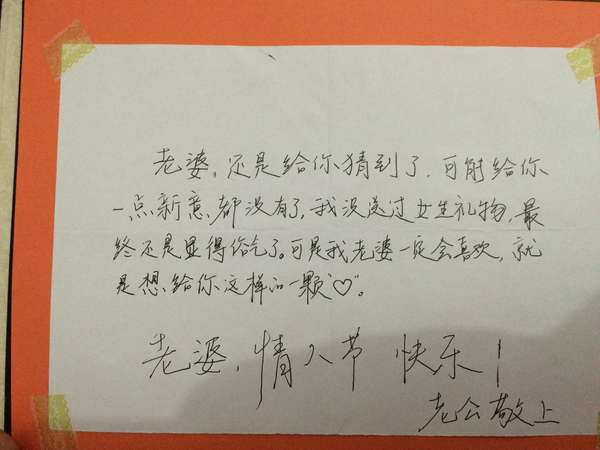 老婆。还是给你猜到了.可能给你
一点新意都没有了,我没送过女生礼物,最
终还是显得俗气了。可是我老婆一定会喜欢,就
是想给你这样的一颗“♡”。
老婆,情人节 快乐!
老公敬上